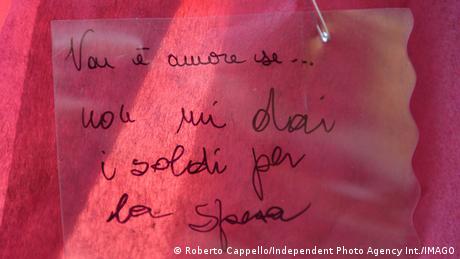 Non è amore se...
non mi dai
i soldi per
la spesa
© Roberto Cappello/Independent Photo Agency Int./IMAGO